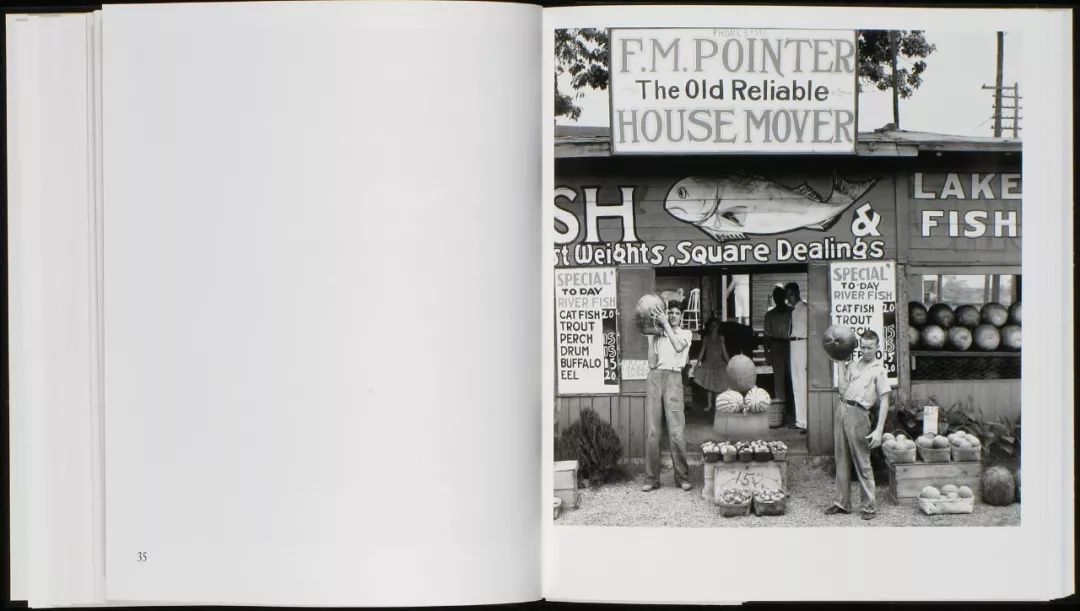 35
PHONE
F.M. POINTER
The Old Reliable
HOUSE MOVER
SH
&
st Weights, Square Dealings
LAKE
FISH
SPECIAL
TO DAY
RIVER FISH
CAT FISH 20
TROUT
PERCH 15
DRUM 15
BUFFALO 15
EEL 20
SPECIAL
TO-DAY
RIVER FISH
CAT FISH 20
TROUT
PERCH 15
15
20
15¢